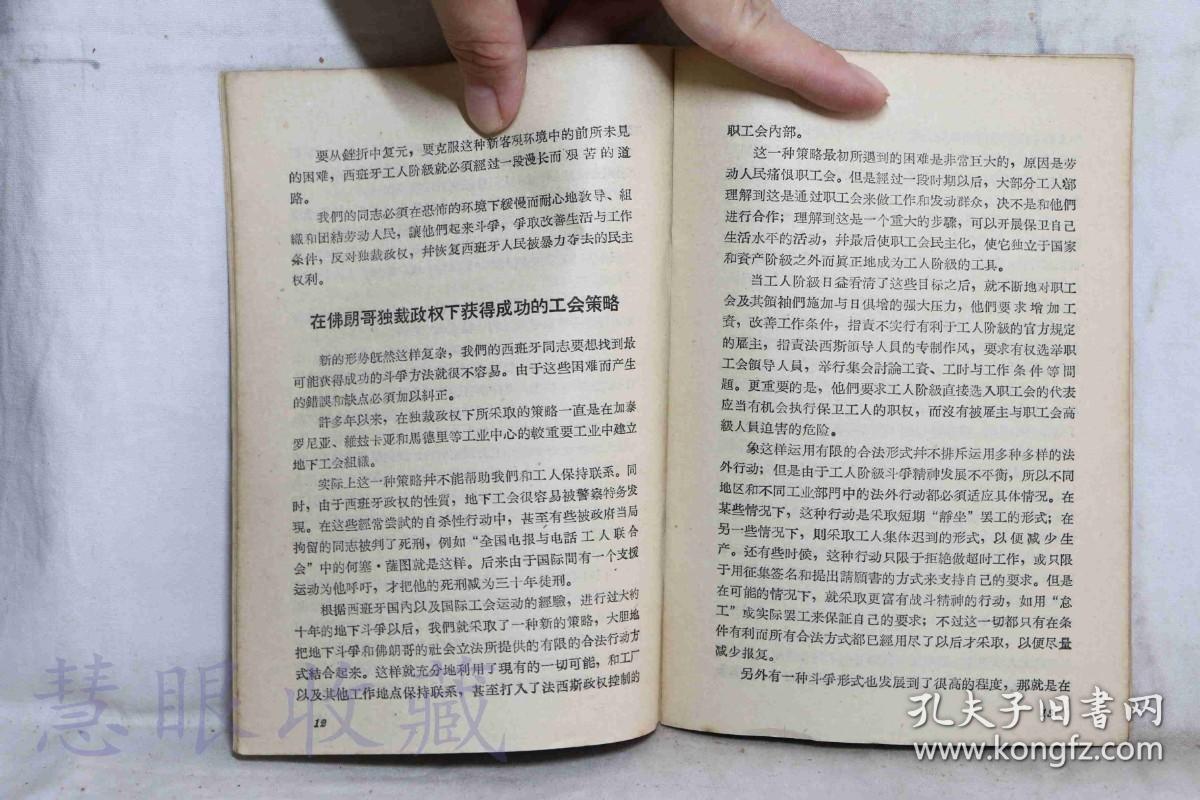 要从銼折中复元，要克服这种新客覌环境中的前所未見
的困难，西班牙工人阶級就必須經过一段漫长而艰苦的道
路。
我們的同志必須在恐怖的环境下緩慢而耐心地教导、組
織和团結劳动人民，讓他們起来斗爭，爭取改善生活与工作
条件，反对独裁政权，幷恢复西班牙人民被暴力夺去的民主
权利。
在佛朗哥独裁政权下获得成功的工会策略
新的形势旣然这样复杂，我們的西班牙同志要想找到最
可能获得成功的斗爭方法就很不容易。由于这些困难而产生
的錯誤和缺点必須加以糾正。
許多年以来，在独裁政权下所采取的策略一直是在加泰
罗尼亚、維兹卡亚和馬德里等工业中心的較重要工业中建立
地下工会組織。
实际上这一种策略幷不能帮助我們和工人保持联系。同
时，由于西班牙政权的性質，地下工会很容易被警察特务发
現。在这些經常尝試的自杀性行动中，甚至有些被政府当局
拘留的同志被判了死刑，例如“全国电报与电話工人联合
会”中的何塞·薩图就是这样。后来由于国际間有一个支援
运动为他呼吁，才把他的死刑减为三十年徒刑。
根据西班牙国內以及国际工会运动的經驗，进行过大約
十年的地下斗爭以后，我們就采取了一种新的策略，大胆地
把地下斗爭和佛朗哥的社会立法所提供的有限的合法行动方
式結合起来。这样就充分地利用了現有的一切可能，和工厂
以及其他工作地点保持联系，甚至打入了法西斯政权控制的
12
职工会內部。
这一种策略最初所遇到的困难是非常巨大的，原因是劳
动人民痛恨职工会。但是經过一段时期以后，大部分工人都
理解到这是通过职工会来做工作和发动群众，决不是和他們
进行合作；理解到这是一个重大的步驟，可以开展保卫自己
生活水平的活动，幷最后使职工会民主化，使它独立于国家
和資产阶級之外而眞正地成为工人阶級的工具。
当工人阶級日益看清了这些目标之后，就不断地对职工
会及其領袖們施加与日俱增的强大压力，他們要求增加工
資，改善工作条件，指責不实行有利于工人阶級的官方規定
的雇主，指責法西斯領导人員的专制作风，要求有权选举职
工会領导人員，举行集会討論工資、工时与工作条件等問
題。更重要的是，他們要求工人阶級直接选入职工会的代表
应当有机会执行保卫工人的职权，而沒有被雇主与职工会高
級人員迫害的危险。
象这样运用有限的合法形式幷不排斥运用多种多样的法
外行动；但是由于工人阶級斗爭精神发展不平衡，所以不同
地区和不同工业部門中的法外行动都必須适应具体情况。在
某些情况下，这种行动是采取短期“靜坐”罢工的形式；在
另一些情况下，則采取工人集体迟到的形式，以便减少生
产。还有些时候，这种行动只限于拒絶做超时工作，或只限
于用征集签名和提出請願書的方式来支持自己的要求。但是
在可能的情况下，就采取更富有战斗精神的行动，如用“怠
工”或实际罢工来保証自己的要求；不过这一切都只有在条
件有利而所有合法方式都已經用尽了以后才采取，以便尽量
减少报复。
另外有一种斗爭形式也发展到了很高的程度，那就是在
慧眼收藏
孔夫子旧書网
www.kongfz.com